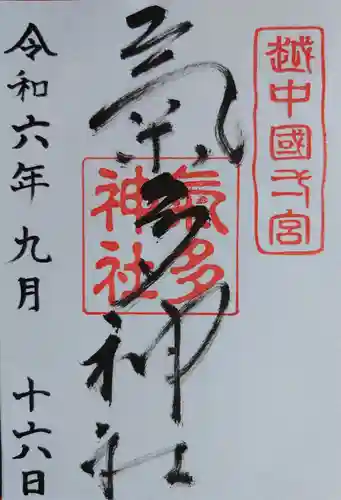 越中國弌宮
氣多神社
氣多
神社
令和六年九月 十六日